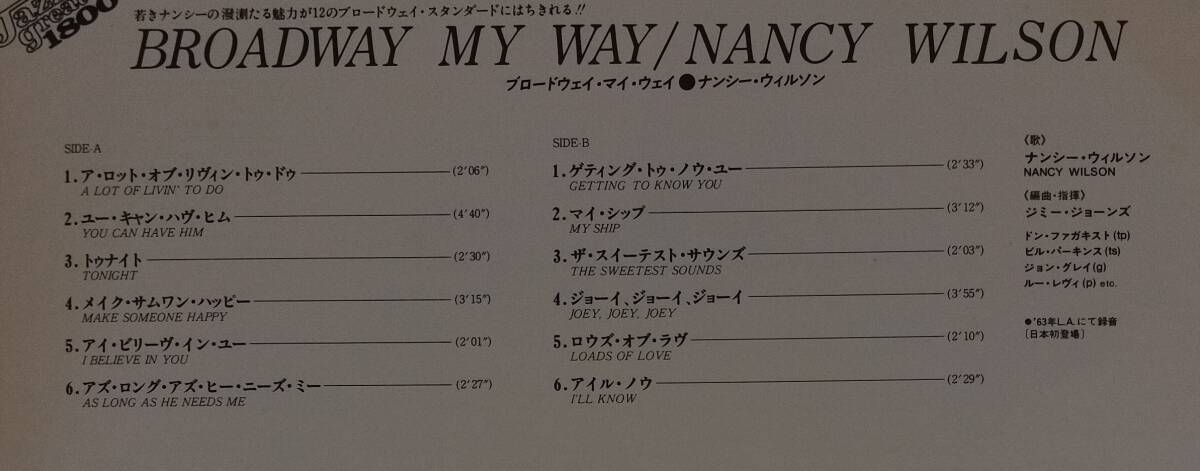 Jazz
greats
1800
若きナンシーの溌溂たる魅力が12のブロードウェイ・スタンダードにはちきれる!!
BROADWAY MY WAY/NANCY WILSON
ブロードウェイ・マイ・ウェイ●ナンシー・ウィルソン
SIDE-A
1.ア・ロット・オブ・リヴィン・トゥ・ドゥ (2'06")
A LOT OF LIVIN' TO DO
2.ユー・キャン・ハヴ・ヒム (4'40")
YOU CAN HAVE HIM
3.トゥナイト (2'30")
TONIGHT
4.メイク・サムワン・ハッピー (3'15")
MAKE SOMEONE HAPPY
5.アイ・ビリーヴ・イン・ユー (2'01")
I BELIEVE IN YOU
6.アズ・ロング・アズ・ヒー・ニーズ・ミー (2'27")
AS LONG AS HE NEEDS ME
SIDE-B
1.ゲティング・トゥ・ノウ・ユー (2'33")
GETTING TO KNOW YOU
2.マイ・シップ (3'12")
MY SHIP
3.ザ・スイーテスト・サウンズ (2'03")
THE SWEETEST SOUNDS
4.ジョーイ、ジョーイ、ジョーイ (3'55")
JOEY, JOEY, JOEY
5.ロウズ・オブ・ラヴ (2'10")
LOADS OF LOVE
6.アイル・ノウ (2'29")
I'LL KNOW
〈歌〉
ナンシー・ウィルソン
NANCY WILSON
〈編曲・指揮〉
ジミー・ジョーンズ
ドン・ファガキスト(tp)
ビル・パーキンス(ts)
ジョン・グレイ(g)
ルー・レヴィ(p) etc.
●'63年L.A.にて録音
〔日本初登場〕